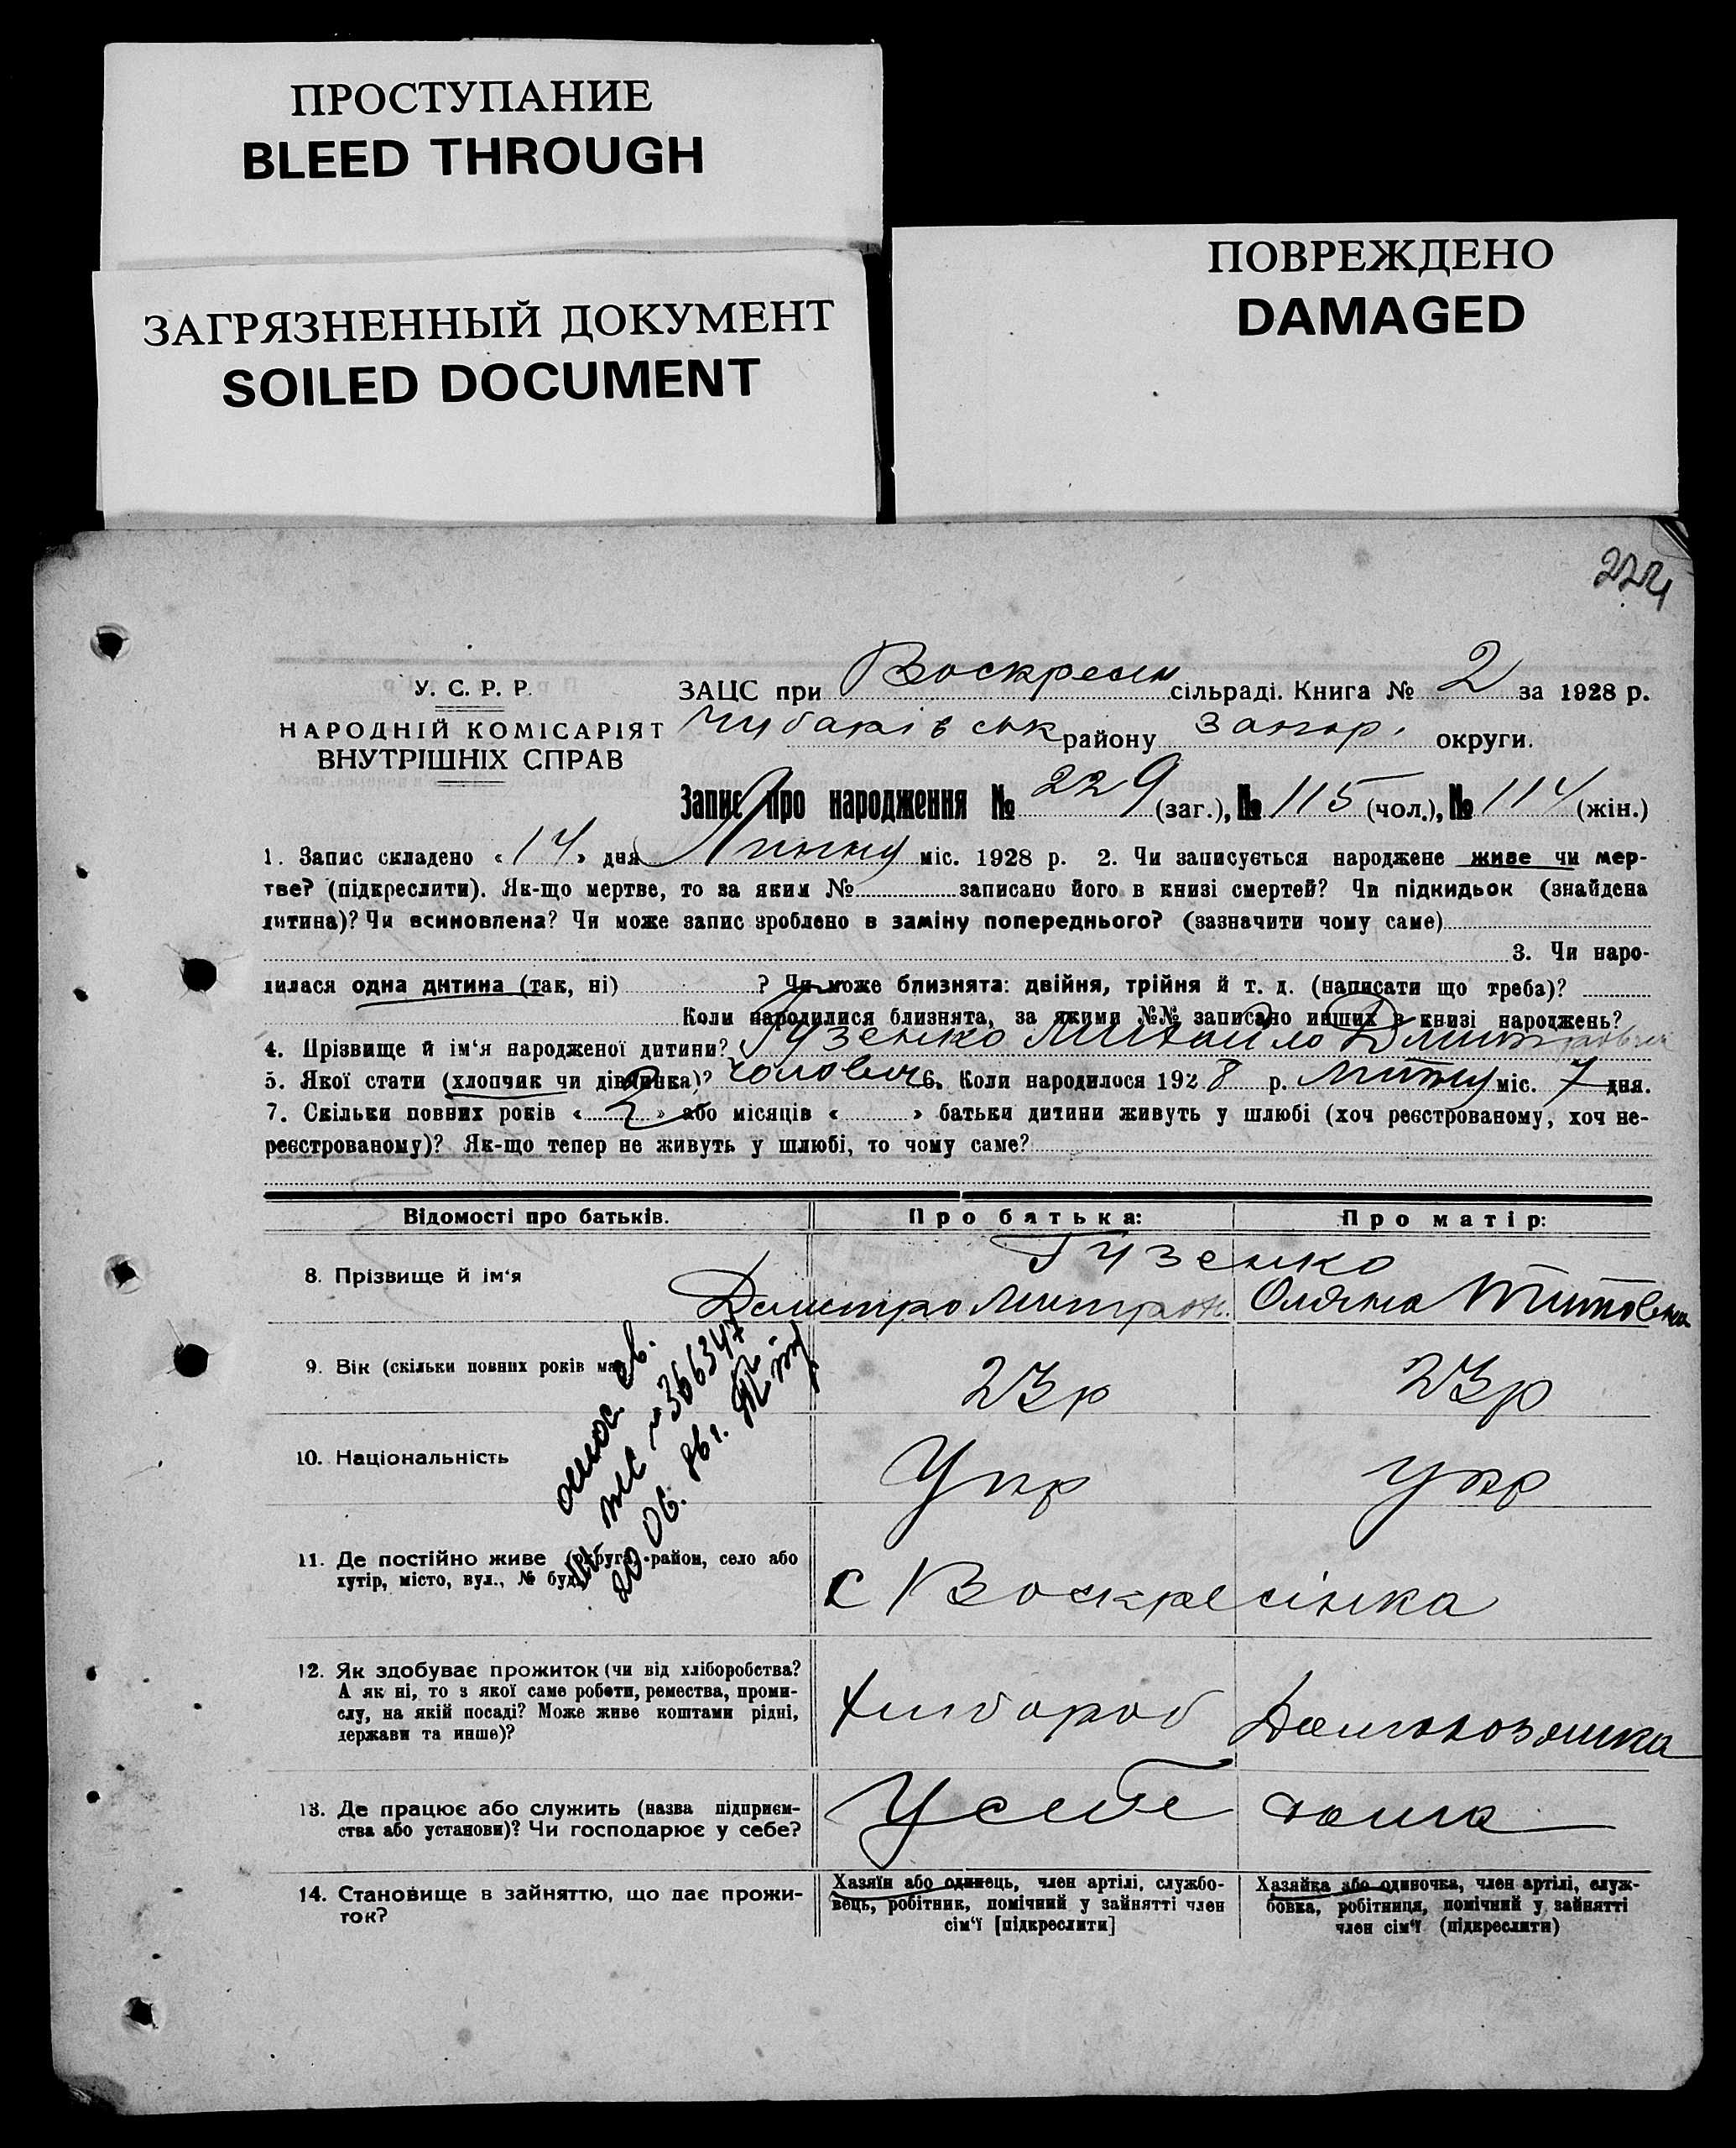 ПРОСТУПАНИЕ
BLEED THROUGH
ЗАГРЯЗНЕННЫЙ ДОКУМЕНТ
SOILED DOCUMENT
ПОВРЕЖДЕНО
DAMAGED
224
У. С. Р. Р.
НАРОДНІЙ КОМІСАРІЯТ
ВНУТРІШНІХ СПРАВ
ЗАЦС при Воскресін сільраді. Книга № 2 за 1928 р.
Чубарівськ району Запор. округи.
Запис про народження № 229 (заг.), № 115 (чол.), № 114 (жін.)
1. Запис складено « 14 » дня Липня міс. 1928 р. 2. Чи записується народжене живе чи мер-
тве? (підкреслити). Як-що мертве, то за яким № записано його в книзі смертей? Чи підкидьок (знайдена
дитина)? Чи всиновлена? Чи може запис зроблено в заміну попереднього? (зазначити чому саме)
3. Чи наро-
дилася одна дитина (так, ні) ? Чи може близнята: двійня, трійня й т. д. (написати що треба)?
Коли народилися близнята, за якими №№ записано инших в книзі народжень?
4. Прізвище й ім'я народженої дитини? Гузенко Михайло Дмитрович
5. Якої стати (хлопчик чи дівчинка)? чолович 6. Коли народилося 1928 р. міс. 7 дня.
7. Скільки повних років « 2 » або місяців « » батьки дитини живуть у шлюбі (хоч реєстрованому, хоч не-
реєстрованому)? Як-що тепер не живуть у шлюбі, то чому саме?
Відомості про батьків. Про батька: Про матір:
8. Прізвище й ім'я Гузенко
Дмитро Митроф. Оляна Титовна
9. Вік (скільки повних років має 23р 23р
10. Національність Укр Укр
11. Де постійно живе (округа, район, село або
хутір, місто, вул., № буд. с Воскресінка
12. Як здобуває прожиток (чи від хліборобства?
А як ні, то з якої саме роботи, ремества, проми-
слу, на якій посаді? Може живе коштами рідні,
держави та инше)? Хлібороб Домохозяшка
13. Де працює або служить (назва підприєм-
ства або установи)? Чи господарює у себе? У себе дома
14. Становище в зайняттю, що дає прожи-
ток?
Хазяїн або одинець, член артілі, службо-
вець, робітник, помічний у зайнятті член
сім'ї [підкреслити]
Хазяйка або одиночка, член артілі, служ-
бовка, робітниця, помічний у зайнятті
член сім'ї (підкреслити)
св.
№ 366347
20 06.